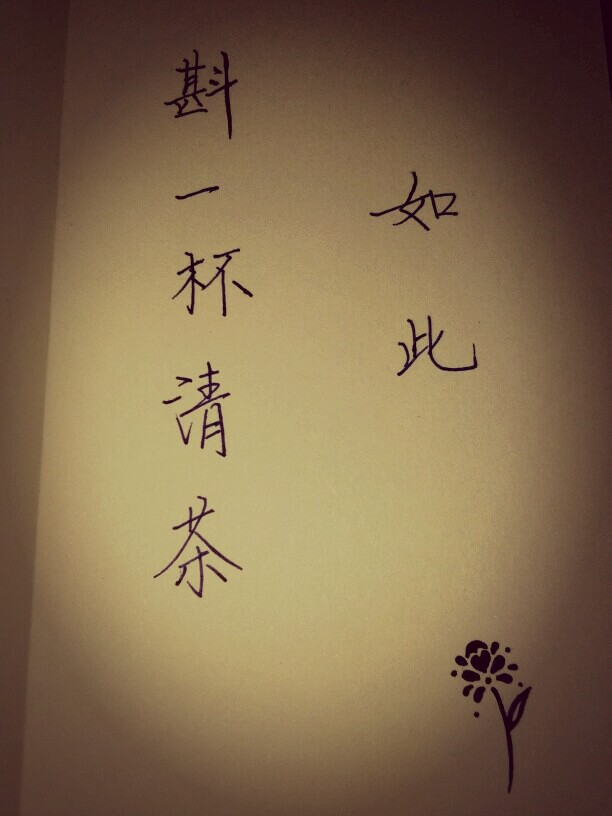 如此
斟一杯清茶